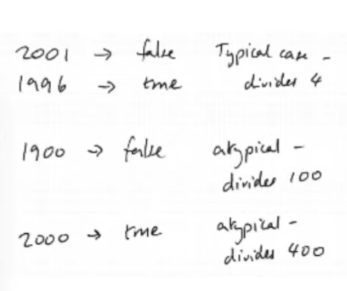 2001 → false Typical case -
1996 → true divides 4
1900 → false atypical -
divides 100
2000 → true atypical -
divides 400